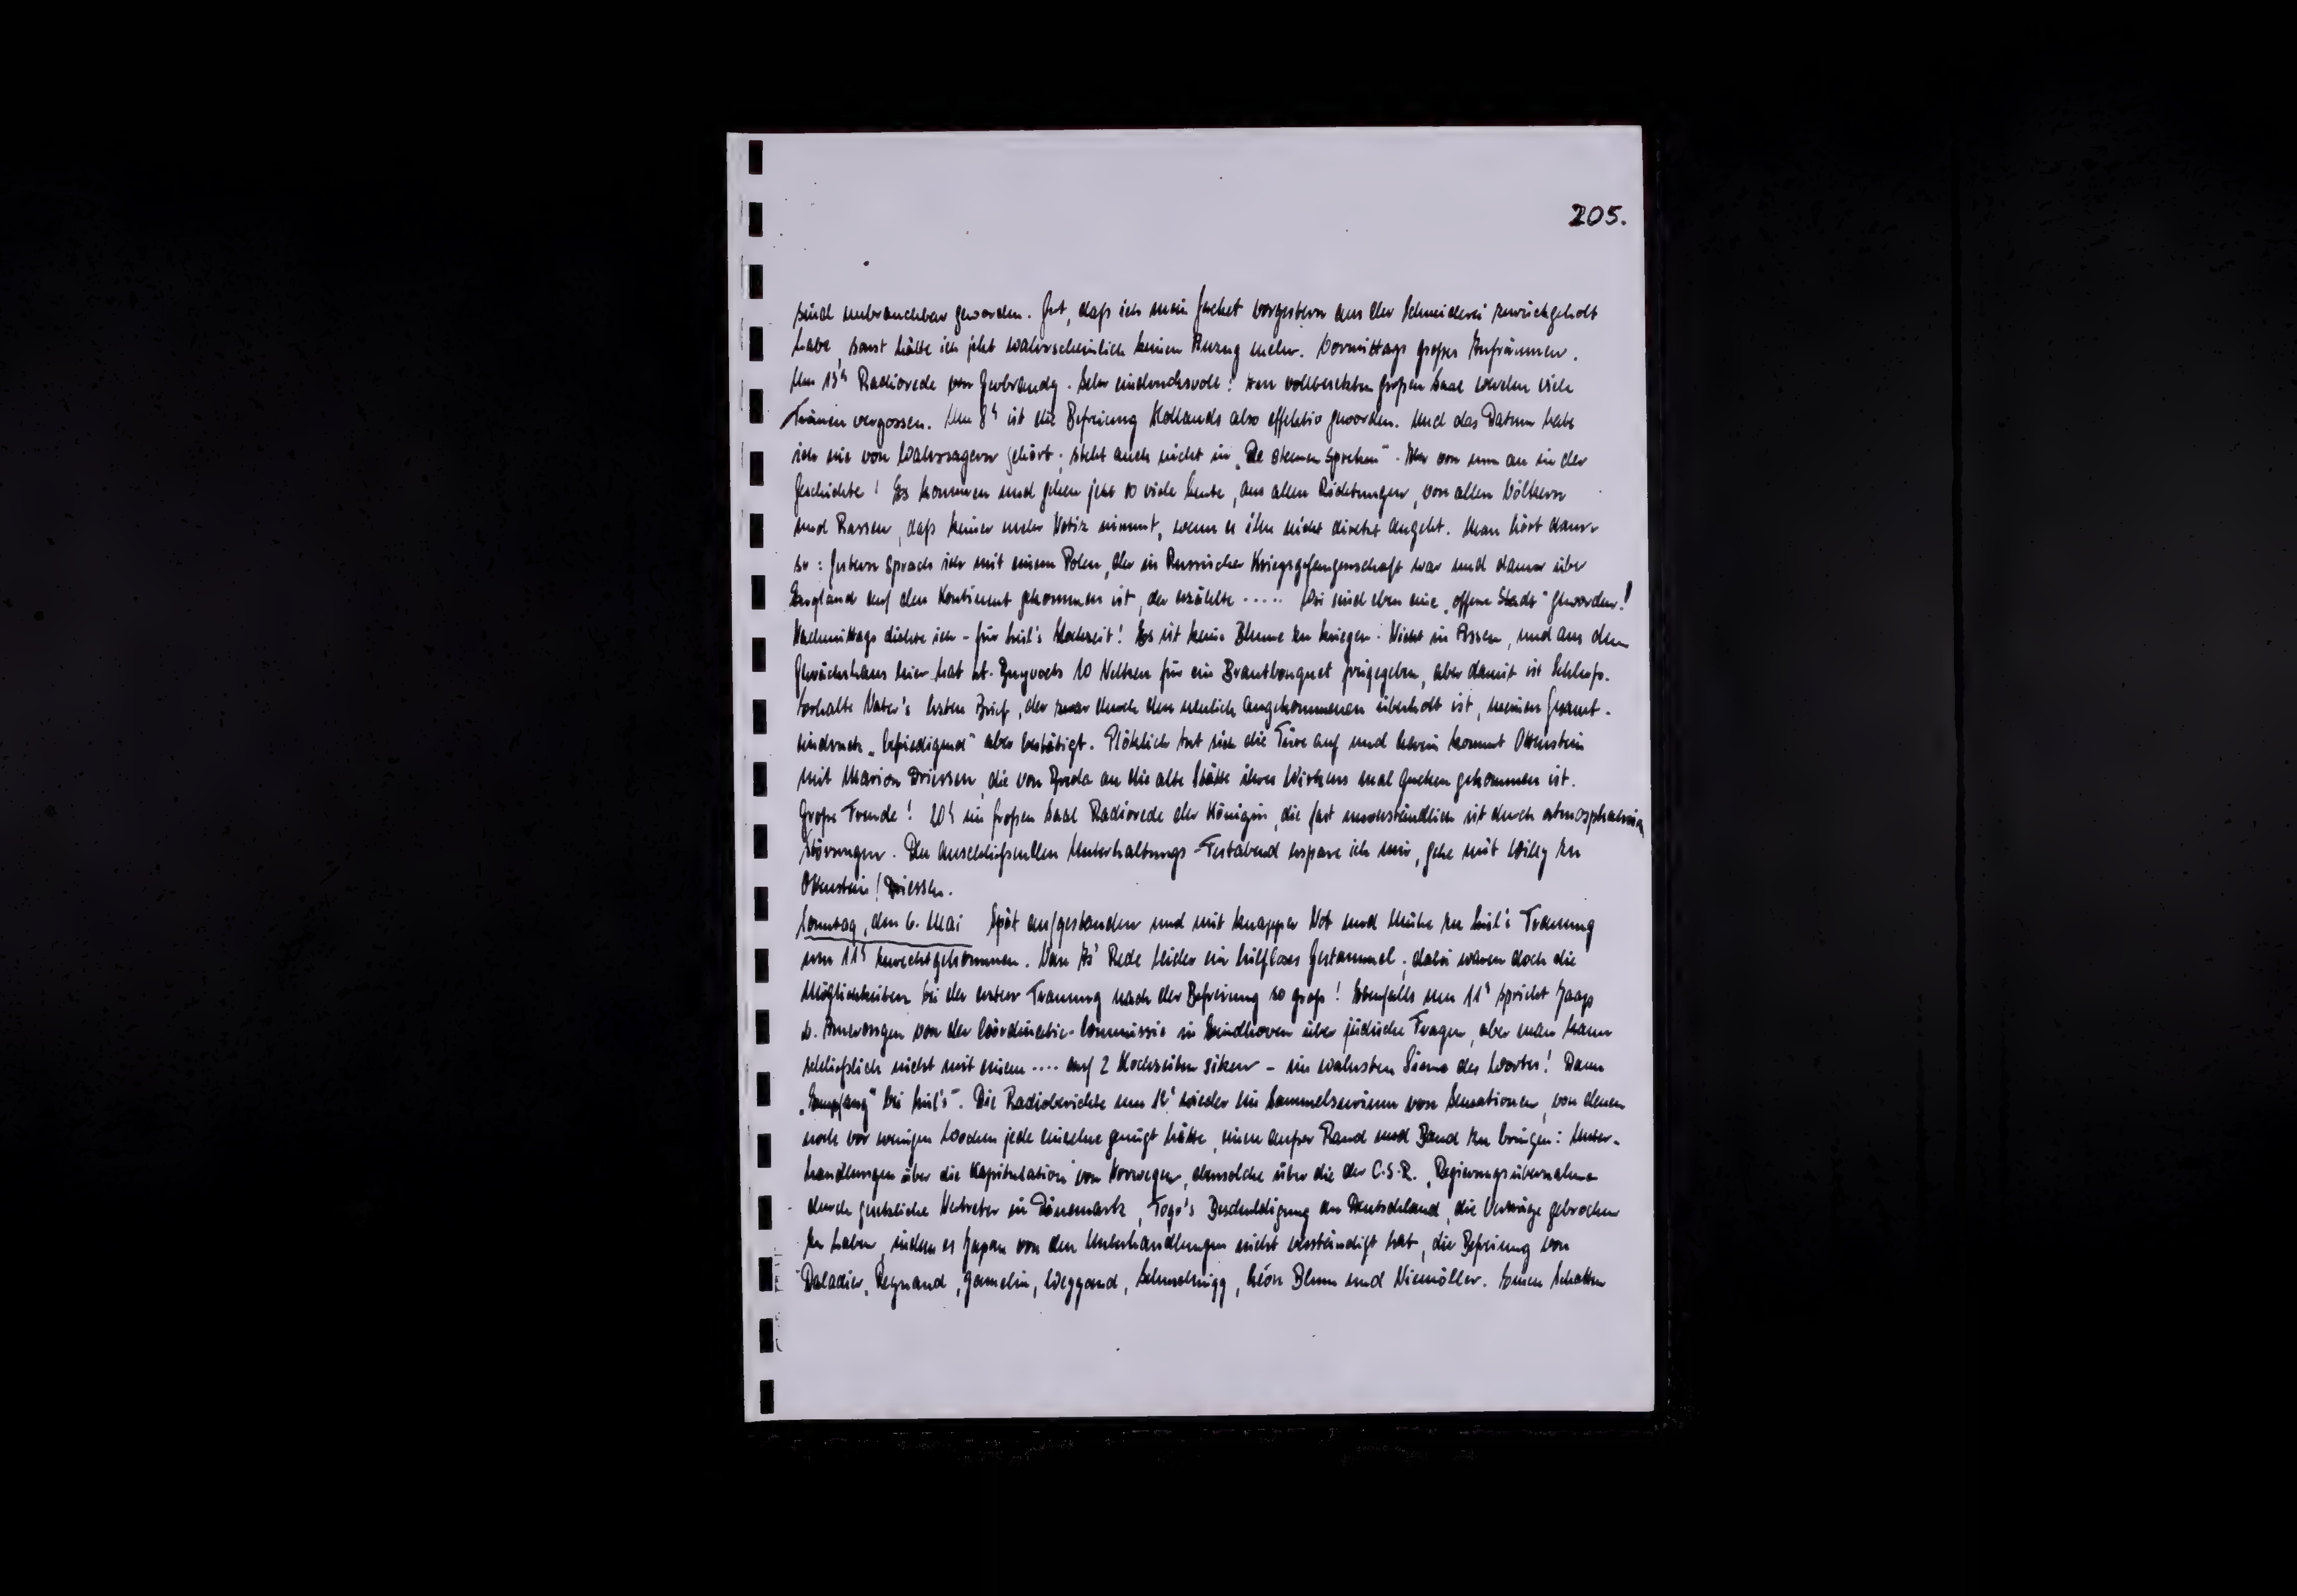 205.
sind unbrauchbar geworden. Gut, daß ich mein Jacket vorgestern aus der Schneiderei zurückgeholt
habe, sonst hätte ich jetzt wahrscheinlich keinen Anzug mehr. Vormittags großes Aufräumen.
Um 13h Radiorede von Gerbrandy. Sehr eindrucksvoll! Im vollbesetzten großen Saal werden viele
Tränen vergossen. Um 8h ist die Befreiung Hollands also effektiv geworden. Und das Datum habe
ich nie von Wahrsagern gehört; steht auch nicht in „De sterren spreken". Aber von nun an in der
Geschichte! Es kommen und gehen jetzt so viele Leute, aus allen Richtungen, von allen Völkern
und Rassen, daß keiner mehr Notiz nimmt, wenn es ihn nicht direkt angeht. Man hört dann
so: Gestern sprach ich mit einem Polen, der in Russischer Kriegsgefangenschaft war und dann über
England auf den Kontinent gekommen ist, der erzählte ..... Wir sind eben eine „offene Stadt" geworden!
Nachmittags dichte ich - für Hochzeit! Es ist keine Blume zu kriegen. Nicht in Assen, und aus dem
Gewächshaus hier hat 10 Nelken für ein Brautbouquet freigegeben, aber damit ist Schluß.
Erhalte Vater's ersten Brief, der zwar durch den neulich angekommenen überholt ist, meinen Gesamt-
eindruck „befriedigend" aber bestätigt. Plötzlich tut sich die Türe auf und herein kommt Ottenstein
mit Marion Driessen, die von Breda an die alte Stätte ihres Wirkens mal gucken gekommen ist.
Große Freude! 20h im großen Saal Radiorede der Königin, die fast unverständlich ist durch atmosphärische
Störungen. Den anschließenden Unterhaltungs-Festabend erspare ich mir, gehe mit Willy zu
Ottenstein / Driessen.
Sonntag, den 6. Mai Spät aufgestanden und mit knapper Not und Mühe zu Trauung
um 11h zurechtgekommen. Van As' Rede leider ein hilfloses Gestammel; dabei waren doch die
Möglichkeiten bei der ersten Trauung nach der Befreiung so groß! Ebenfalls um 11h spricht Jaap
v. Amerongen von der Coördinatie-Commissie in Eindhoven über jüdische Fragen, aber man kann
schließlich nicht mit einem .... auf 2 Hochzeiten sitzen - im wahrsten Sinne des Wortes! Dann
„Empfang" bei Die Radioberichte um 12h wieder ein Sammelsurium von Sensationen, von denen
noch vor wenigen Wochen jede einzelne genügt hätte, einen außer Rand und Band zu bringen: Unter-
handlungen über die Kapitulation von Norwegen, ebensolche über die der C.S.R., Regierungsübernahme
durch gesetzliche Vertreter in Dänemark, Togo's Beschuldigung an Deutschland, die Verträge gebrochen
zu haben, indem es Japan von den Unterhandlungen nicht verständigt hat, die Befreiung von
Daladier, Reynaud, Gamelin, Weygand, Schuschnigg, Léon Blum und Niemöller. Einen Schatten